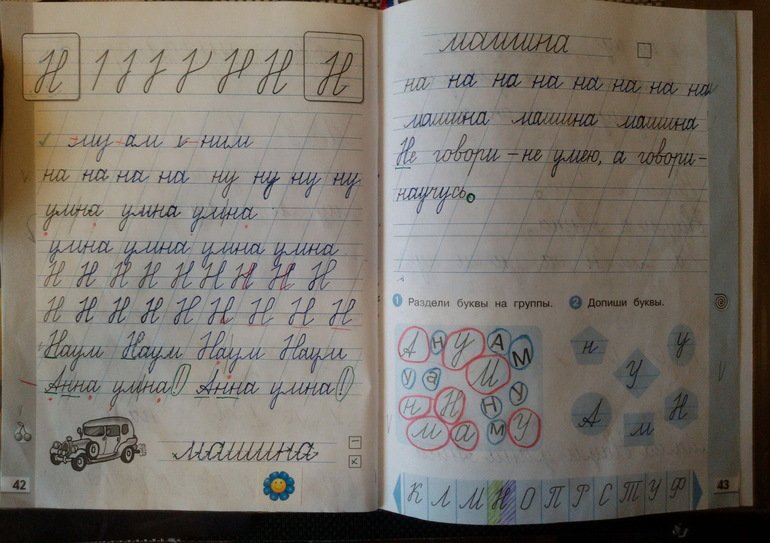 Н 1 Н Н Н
му ам к ним
на на на на ну ну ну ну
умна умна умна
умна умна умна умна
Н Н Н Н Н Н Н Н Н Н
Н Н Н Н Н Н Н Н Н Н
Наум Наум Наум Наум
Анна умна! Анна умна!
машина
42
машина
на на на на на на на на
машина машина машина
Не говори – не умею, а говори –
научусь.
1 Раздели буквы на группы.
А н У А М
у а И
н Н Н у
м а м У
2 Допиши буквы.
н у
У
А м Н
К Л М Н О П Р С Т У Ф
43